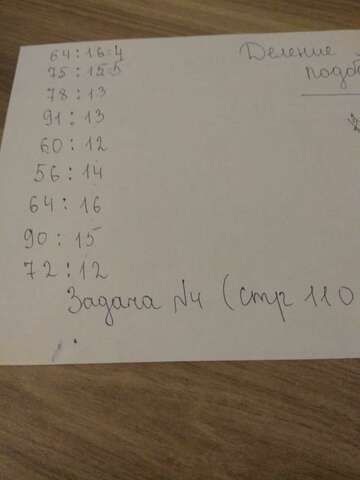 64 : 16 = 4
75 : 15 = 5
78 : 13
91 : 13
60 : 12
56 : 14
64 : 16
90 : 15
72 : 12
Деление
подоб
Задача №4 (стр 110